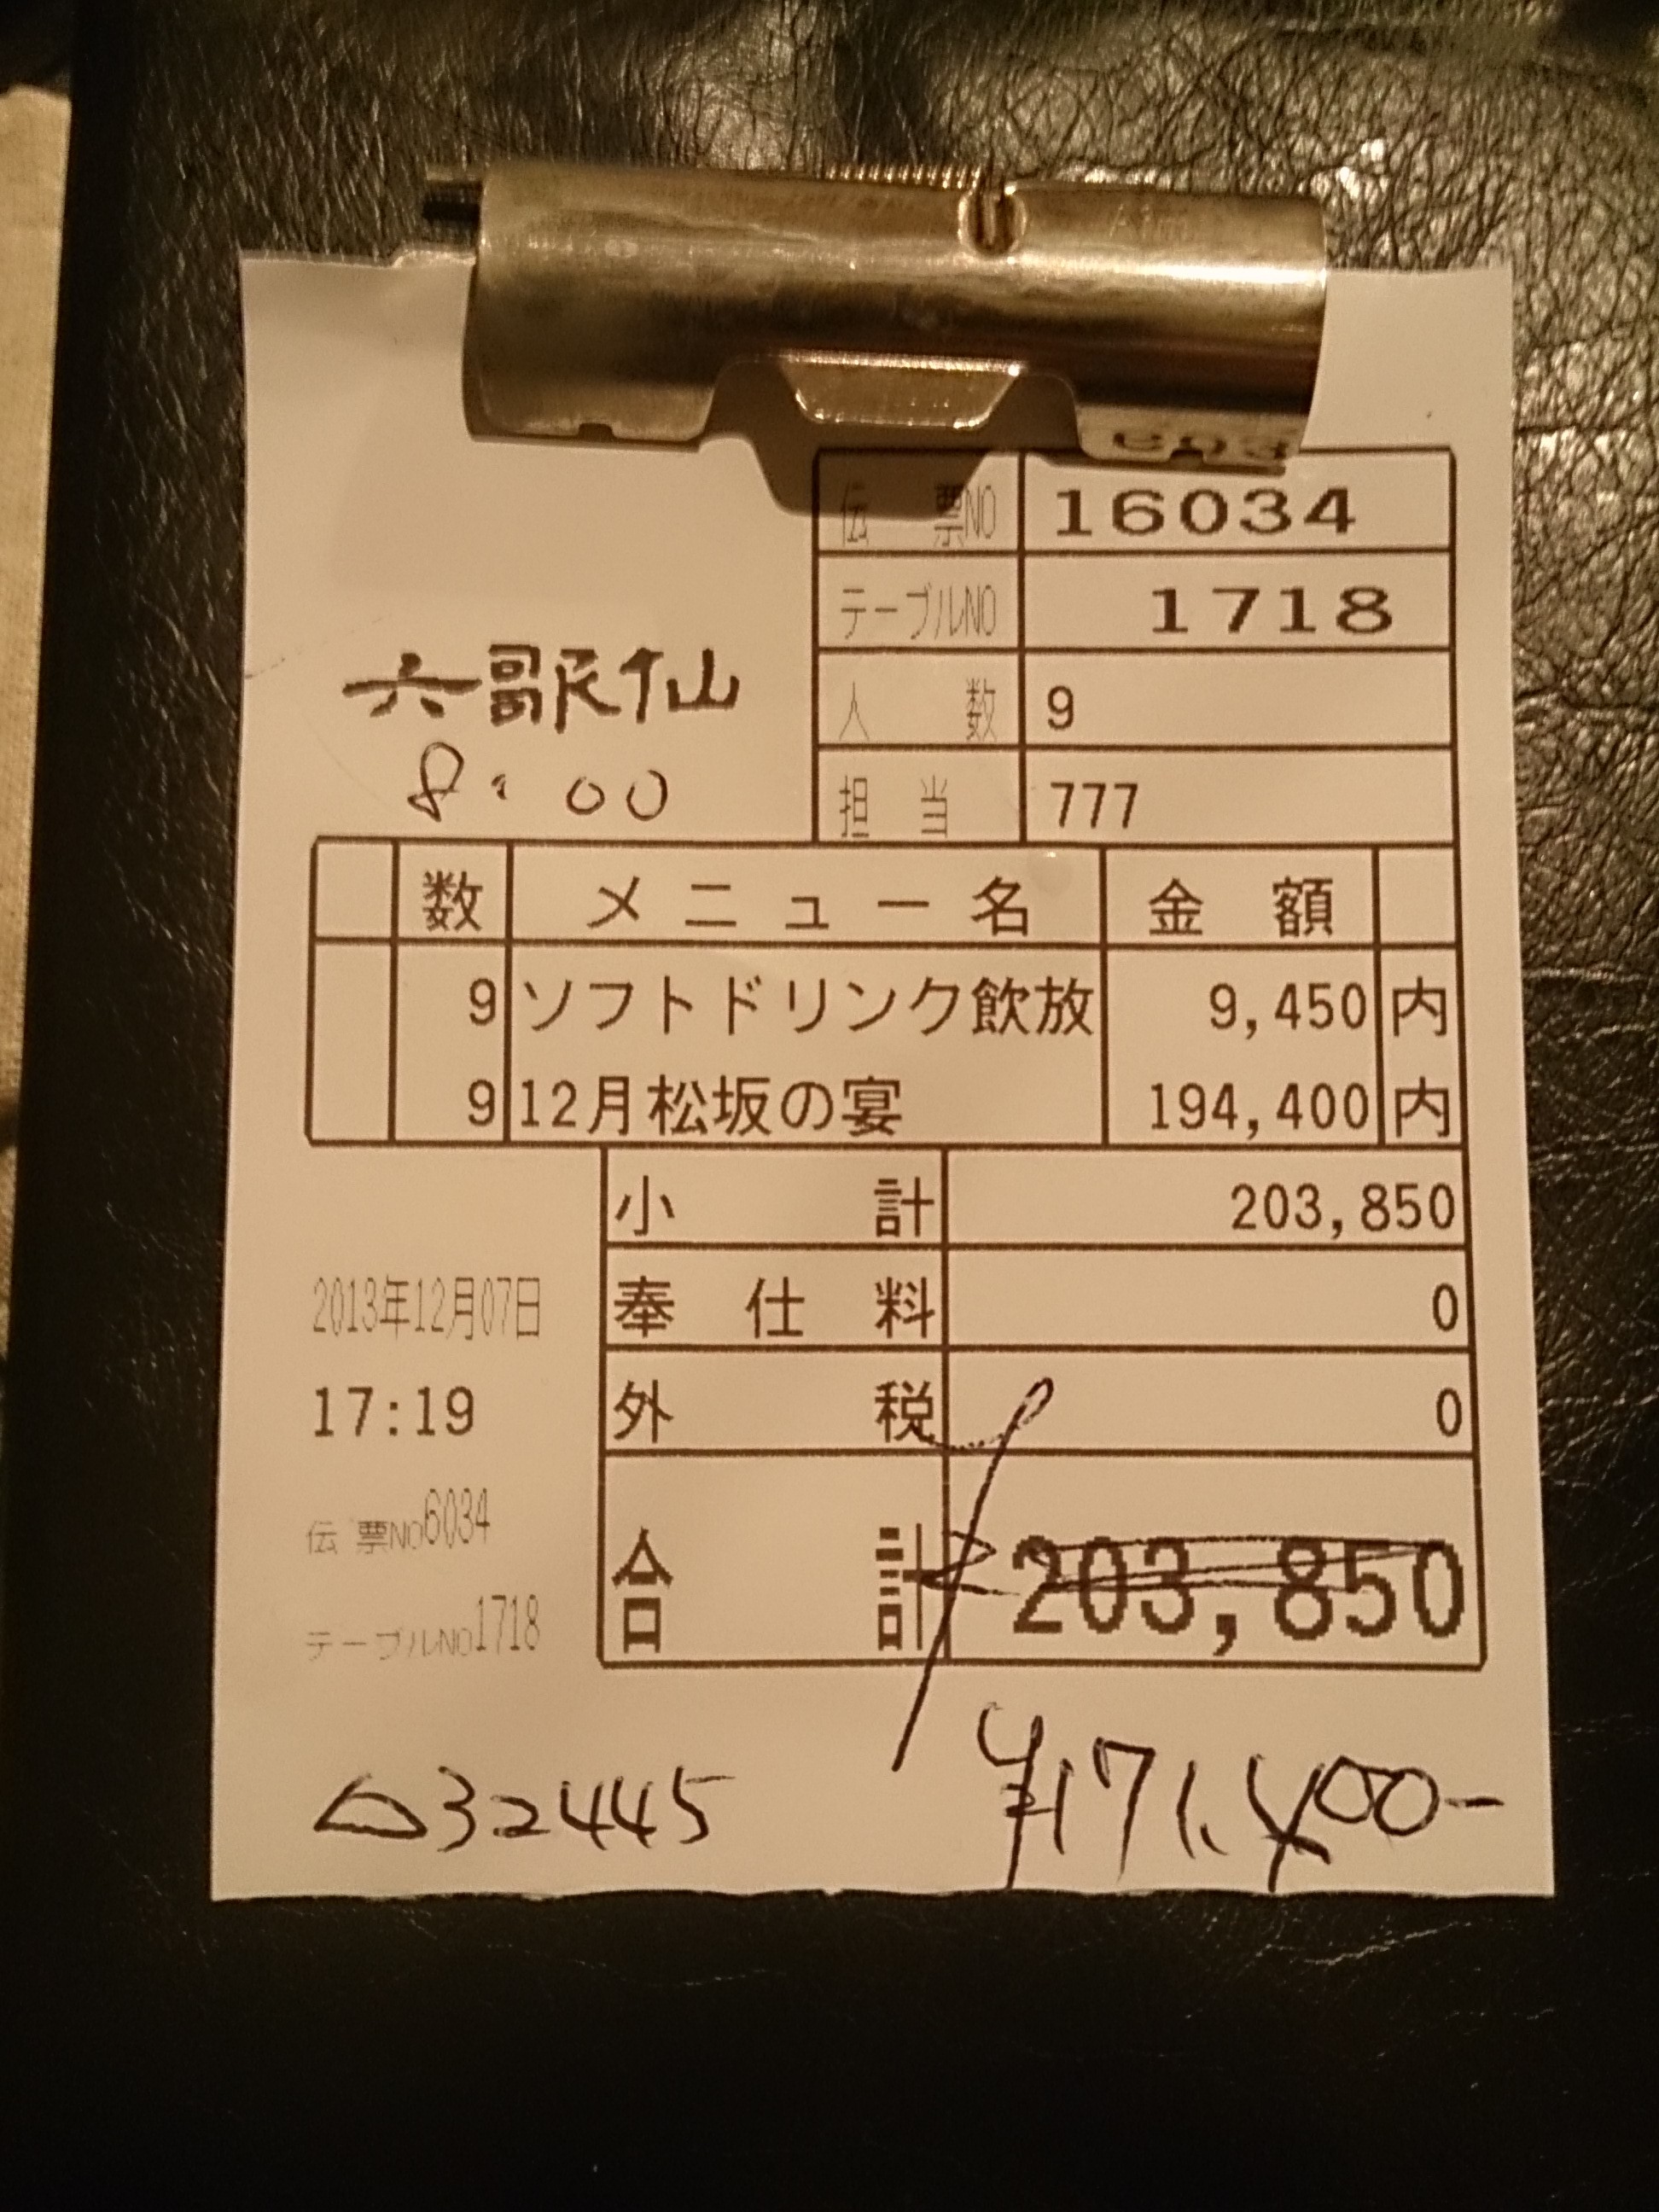 伝票NO 16034
テーブルNO 1718
人数 9
担当 777
六歌仙
8:00
数 メニュー名 金額
9 ソフトドリンク飲放 9,450 内
9 12月松坂の宴 194,400 内
小計 203,850
奉仕料 0
外税 0
合計 203,850
2013年12月07日
17:19
伝票NO6034
テーブルNO1718
△32445
¥171,400-